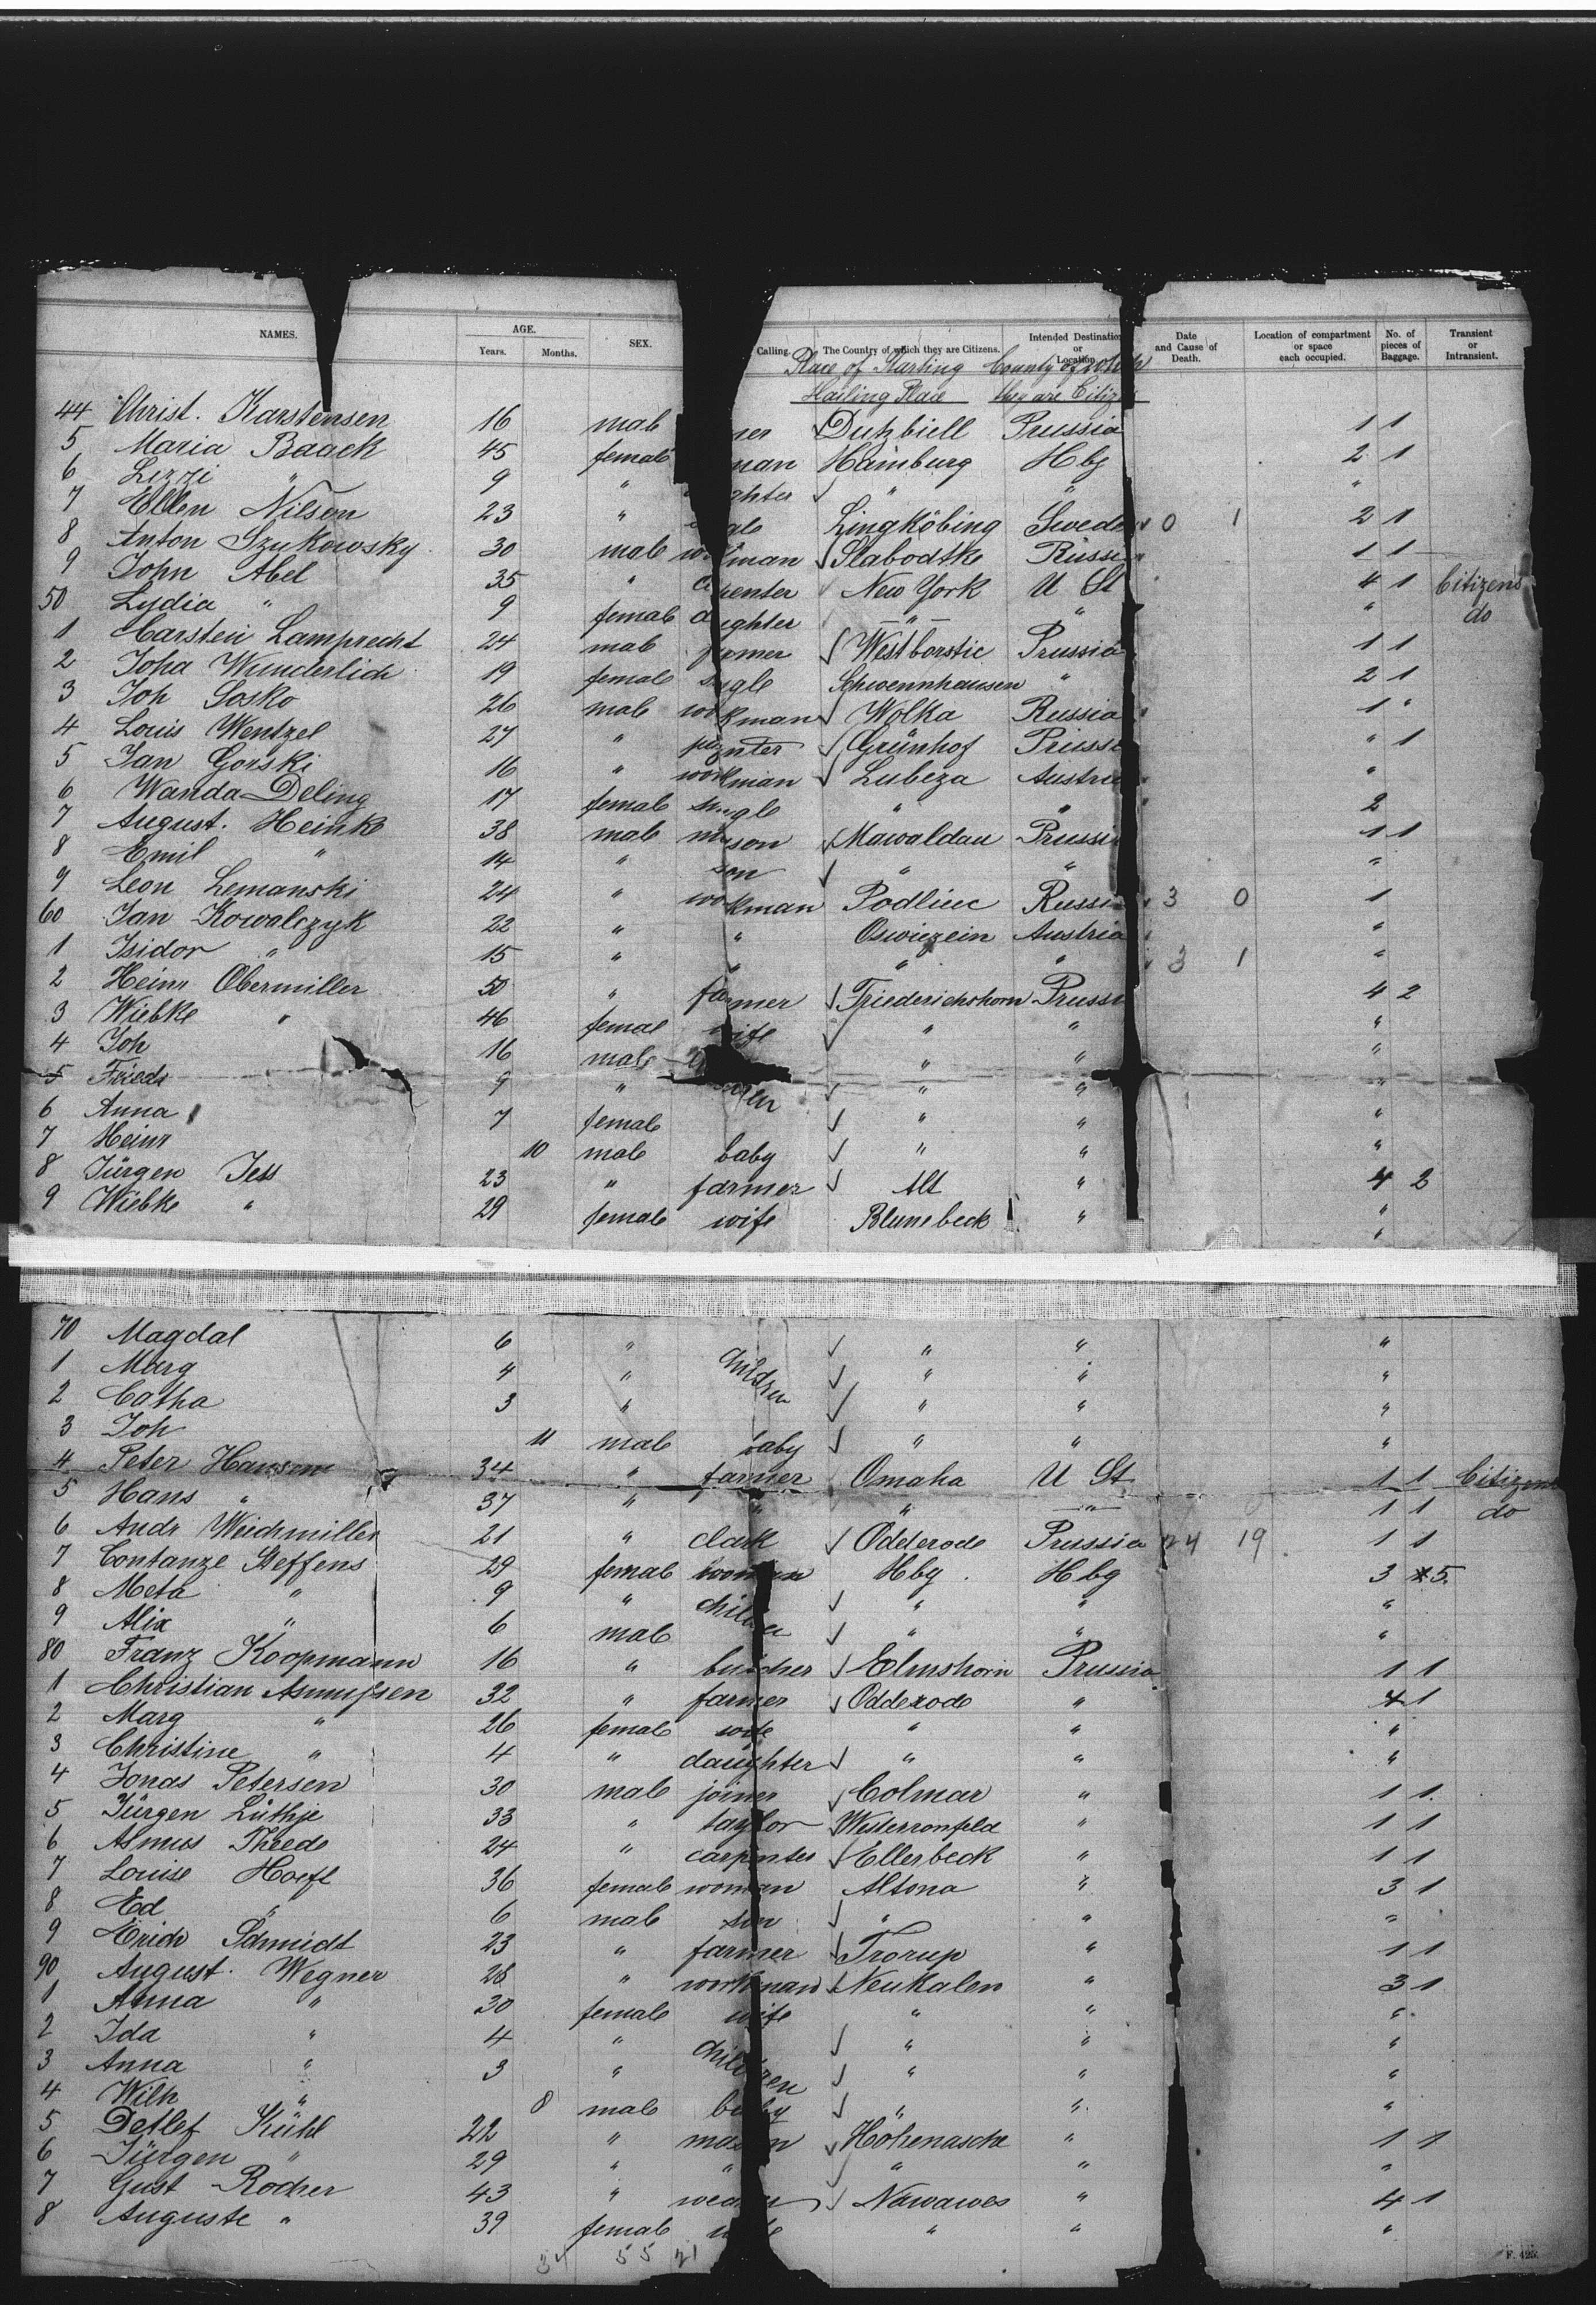 NAMES. AGE. SEX. Calling. The Country of which they are Citizens. Intended Destination or Location Date and Cause of Death. Location of compartment or space each occupied. No. of pieces of Baggage. Transient or Intransient.
Years. Months.
Place of Starting County of which
Hailing Place they are Citiz
44 Christ. Karstensen 16 male mer Dutzbiell Prussia 1 1
5 Maria Baack 45 female man Hamburg Hbg 2 1
6 Lizzi " 9 " ghter " " "
7 Ellen Nilsen 23 " gle Lingköbing Swede 0 1 2 1
8 Anton Szukowsky 30 male workman Slabodtke Russi 1 1
9 John Abel 35 " penter New York U St 4 1 Citizens
50 Lydia " 9 female daughter " " " do
1 Carsten Lamprecht 24 male farmer Westborstic Prussia 1 1
2 Joha Wunderlich 19 female single Schwennhausen " 2 1
3 Joh Sosko 26 male workman Wolka Russia 1 "
4 Louis Wentzel 27 " painter Grünhof Prussi " 1
5 Jan Gorski 16 " workman Lubeza Austria "
6 Wanda Deling 17 female single " " 2
7 August. Heinke 38 male mason Mawaldau Prussi 1 1
8 Emil " 14 " son " " "
9 Leon Lemanski 24 " workman Podliuc Russi 3 0 1
60 Jan Kowalczyk 22 " " Oswiezein Austria "
1 Isidor " 15 " " " " 3 1 "
2 Heinr Obermiller 50 " farmer Friederichshorn Prussi 4 2
3 Wiebke " 46 female wife " " "
4 Joh 16 male " " "
5 Friedr 9 " " " "
6 Anna 7 female " " "
7 Heinr 10 male baby " " "
8 Jürgen Jess 23 " farmer Alt " 4 2
9 Wiebke " 29 female wife Blunebeck " "
70 Magdal 6 " children " " "
1 Marg 4 " " " "
2 Catha 3 " " " "
3 Joh 11 male baby " " "
4 Peter Hansen 34 " farmer Omaha U St 1 1 Citizens
5 Hans " 37 " " " " 1 1 do
6 Andr Weichmiller 21 " clark Odderode Prussia 24 19 1 1
7 Contanze Steffens 29 female woman Hbg. Hbg 3 5
8 Meta " 9 " children " " "
9 Alix " 6 male " " "
80 Franz Koopmann 16 " butcher Elmshorn Prussia 1 1
1 Christian Asmussen 32 " farmer Odderode " 4 1
2 Marg " 26 female wife " " "
3 Christine " 4 " daughter " " "
4 Jonas Petersen 30 male joiner Colmar " 1 1
5 Jürgen Lüthje 33 " taylor Westerronfeld " 1 1
6 Asmus Theede 24 " carpenter Ellerbeck " 1 1
7 Louise Hoeft 36 female woman Altona " 3 1
8 Ed " 6 male son " " "
9 Erich Schmidt 23 " farmer Trorup " 1 1
90 August. Wegner 28 " workman Neukalen " 3 1
1 Anna " 30 female wife " " "
2 Ida " 4 " children " " "
3 Anna " 3 " " " "
4 Wilh " 8 male baby " " "
5 Detlef Kühl 22 " mason Höhenasche " 1 1
6 Jürgen " 29 " " " " "
7 Gust Rocher 43 " weaver Nawawes " 4 1
8 Auguste " 39 female wife " " "
34 55 21
F. 425.